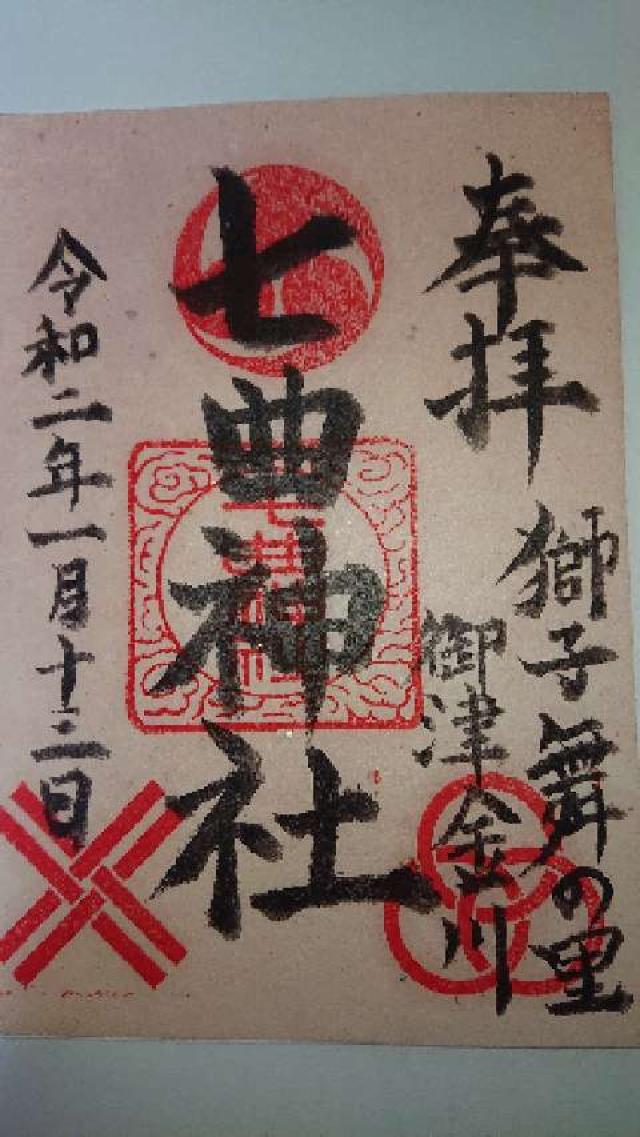 奉拝
獅子舞の里
御津金川
七曲神社
令和二年一月十二日